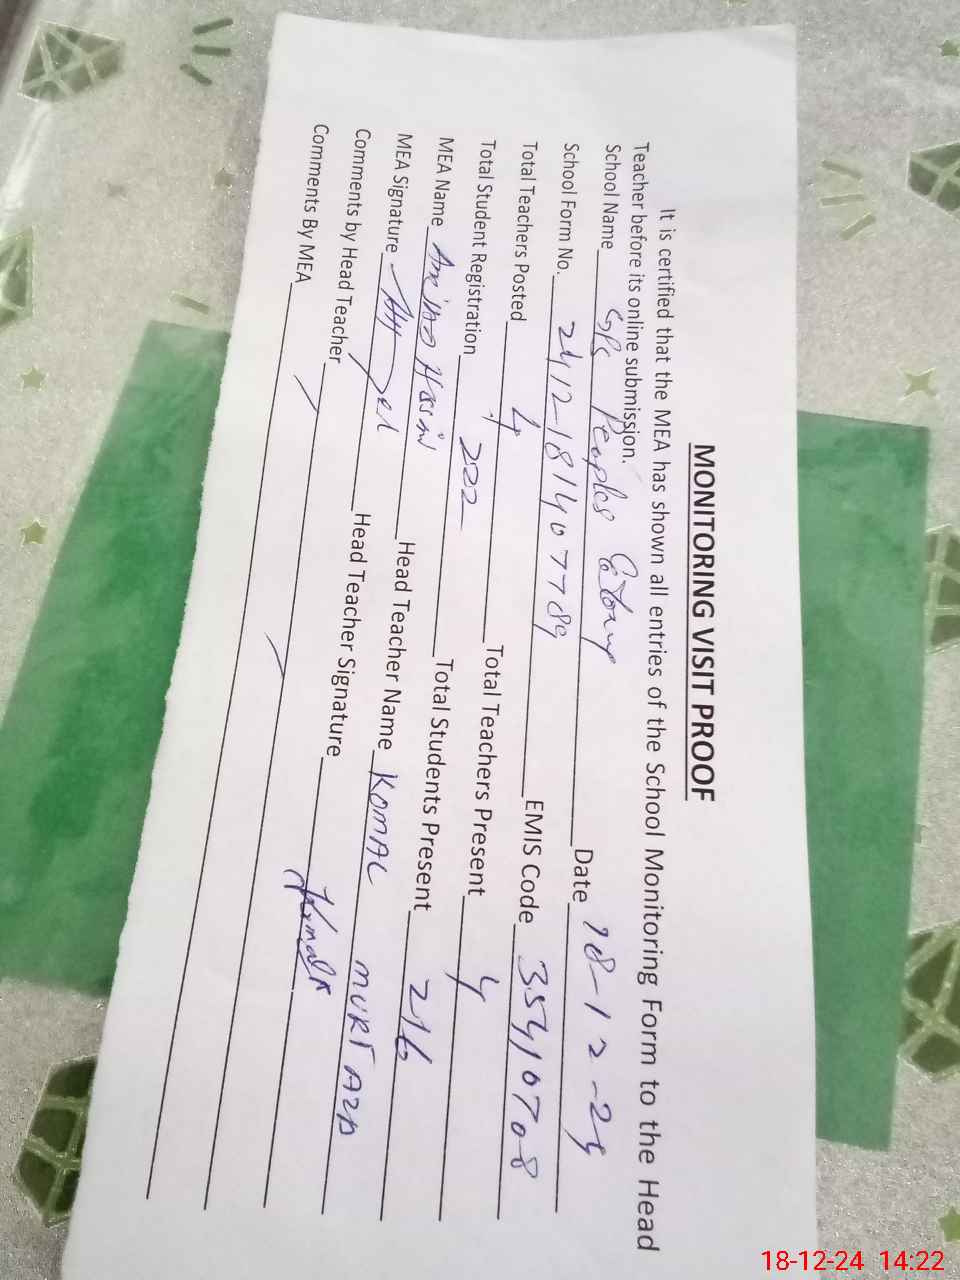 MONITORING VISIT PROOF
It is certified that the MEA has shown all entries of the School Monitoring Form to the Head
Teacher before its online submission.
School Name GPS Peoples Colony Date 18-12-24
School Form No. 2412-181407789 EMIS Code 35410708
Total Teachers Posted 4 Total Teachers Present 4
Total Student Registration 222 Total Students Present 216
MEA Name Head Teacher Name KOMAL MURTAZA
MEA Signature Head Teacher Signature Komal
Comments by Head Teacher
Comments By MEA
18-12-24 14:22